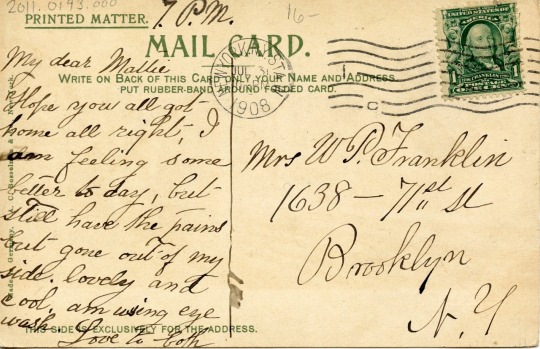 2011.0193.000
7 P.M.
16-
PRINTED MATTER.
MAIL CARD.
WRITE ON BACK OF THIS CARD ONLY YOUR NAME AND ADDRESS
PUT RUBBER-BAND AROUND FOLDED CARD.
NEW YORK, N.Y.
JUL
1908
C
UNITED STATES OF AMERICA
FRANKLIN
ONE
My dear Mallie
Hope you all got
home all right, I
am feeling some
better to day, but
still have the pains
but gone out of my
side. lovely and
cool, am using eye
wash. Love to both
Mrs W. P. Franklin
1638 – 71st St
Brooklyn
N. Y
Made in Germany.
New York.
THIS SIDE IS EXCLUSIVELY FOR THE ADDRESS.